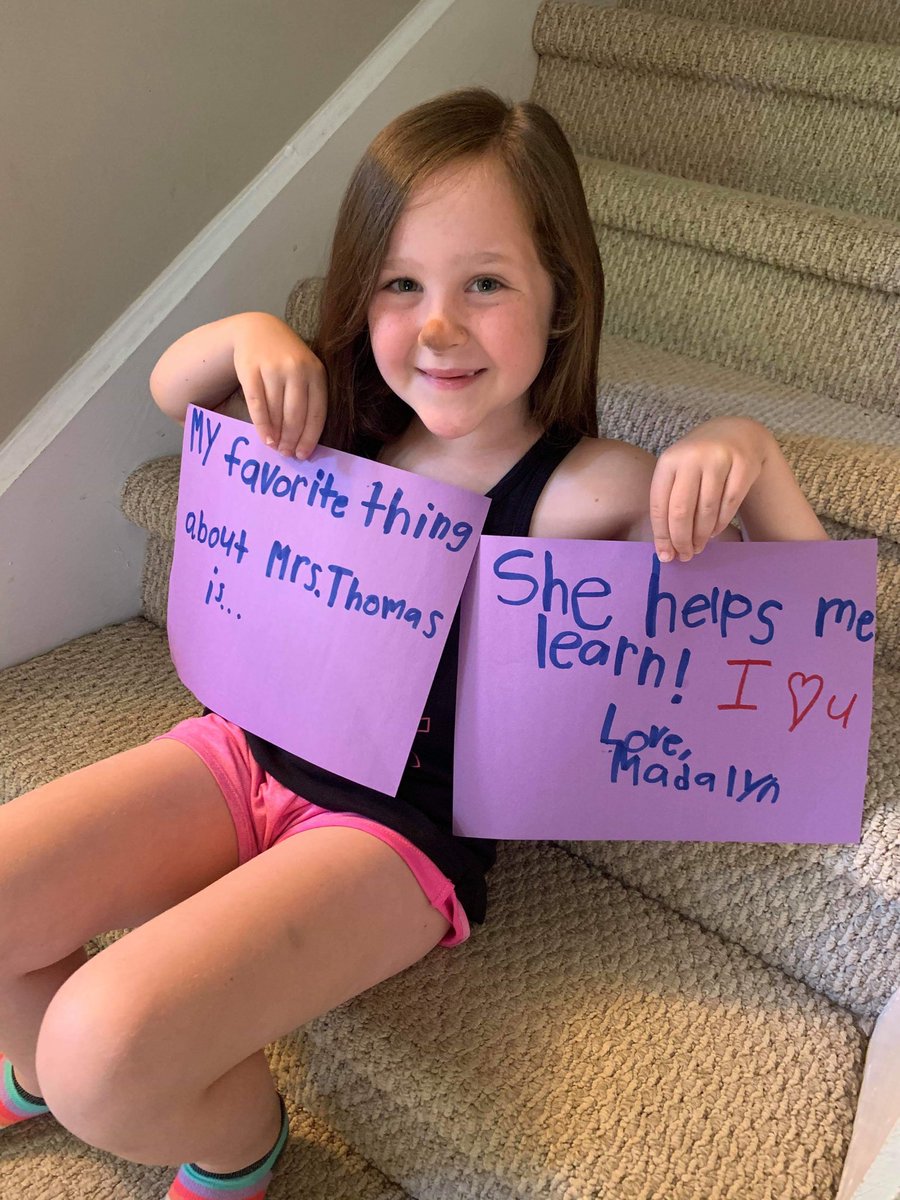 My favorite thing
about Mrs. Thomas
is...
She helps me
learn! I ♡ u
Love,
Madalyn